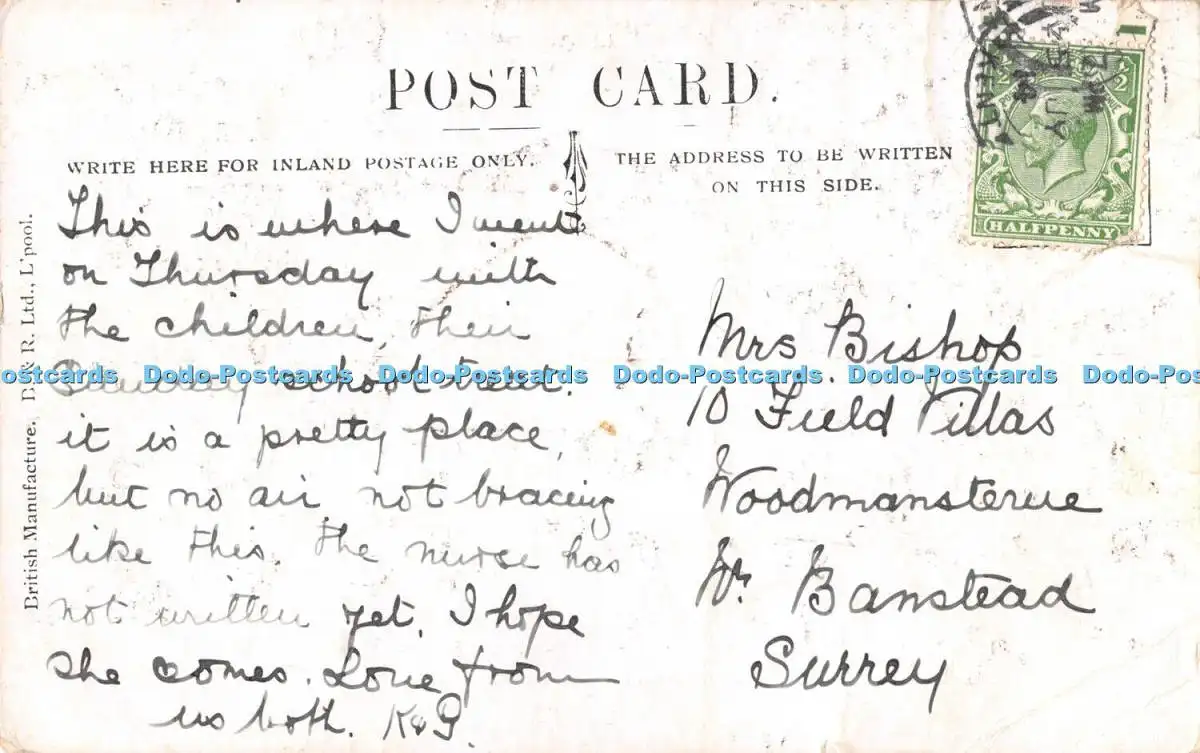 POST CARD.
WRITE HERE FOR INLAND POSTAGE ONLY.
THE ADDRESS TO BE WRITTEN
ON THIS SIDE.
British Manufacture. D. & R. Ltd., L'pool.
HALFPENNY
This is where I went
on Thursday with
the children, their
Sunday school treat.
it is a pretty place,
but no air, not bracing
like this. The nurse has
not written yet. I hope
she comes. Love from
us both. K & G.
Mrs Bishop
10 Field Villas
Woodmansterne
Nr. Banstead
Surrey
Dodo-Postcards Dodo-Postcards Dodo-Postcards Dodo-Postcards